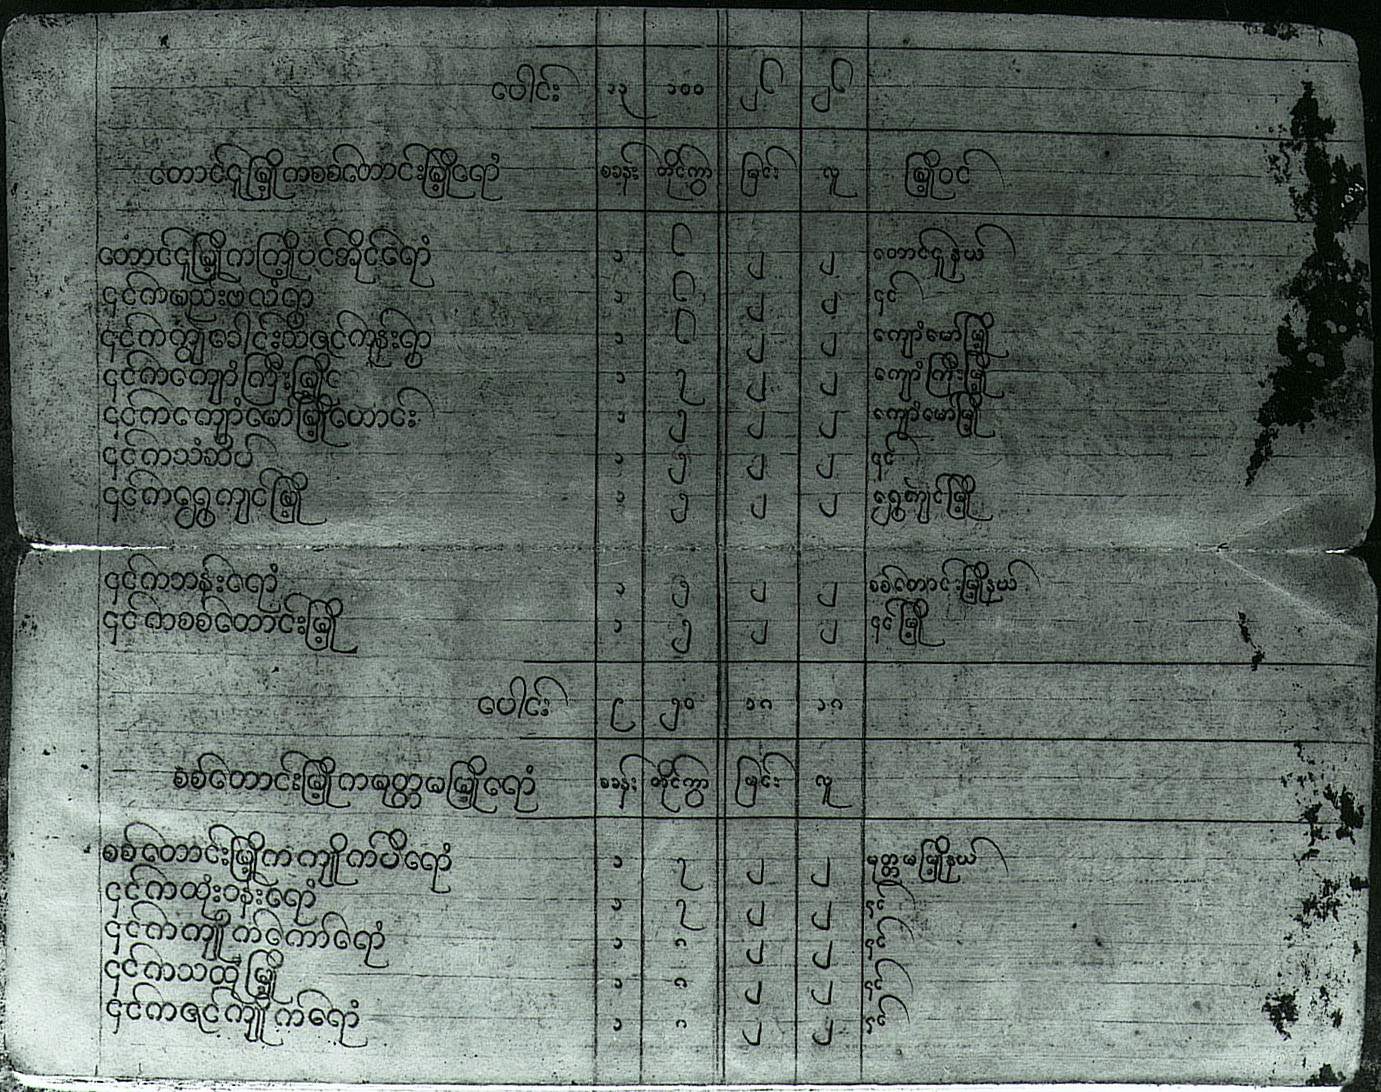 ပေါင်း ၁၃ ၁၀၀ ၂၆ ၂၆
တောင်ငူမြို့ကစစ်တောင်းမြို့ရောံ စခန်း တိုင်ကွာ မြင်း လူ မြို့ဝင်
တောင်ငူမြို့ကကြို့ပင်အိုင်ရောံ ၁ ၆ ၂ ၂ တောင်ငူနယ်
၎င်းက ၁ ၆ ၂ ၂ ၎င်
၎င်က ၁ ၆ ၂ ၂ ကျောံမော်မြို့
၎င်ကကျောံကြီးမြို့ ၁ ၇ ၂ ၂ ကျောံကြီးမြို့
၎င်ကကျောံမော်မြို့ဟောင်း ၁ ၅ ၂ ၂ ကျောံမော်မြို့
၎င်ကသံဆိပ် ၁ ၅ ၂ ၂ ၎င်
၎င်ကရွှေကျင်မြို့ ၁ ၅ ၂ ၂ ရွှေကျင်မြို့
၎င်ကဘန်းရောံ ၁ ၅ ၂ ၂ စစ်တောင်းမြို့နယ်
၎င်ကစစ်တောင်းမြို့ ၁ ၅ ၂ ၂ ၎င်မြို့
ပေါင်း ၉ ၅၀ ၁၈ ၁၈
စစ်တောင်းမြို့ကမုတ္တမမြို့ရောံ စခန်း တိုင်ကွာ မြင်း လူ
စစ်တောင်းမြို့ကကျိုက်ပိရောံ ၁ ၇ ၂ ၂ မုတ္တမမြို့နယ်
၎င်ကထုံးဝန်းရောံ ၁ ၇ ၂ ၂ ၎င်
၎င်ကကျိုက်ကော်ရောံ ၁ ၈ ၂ ၂ ၎င်
၎င်ကသထုံမြို့ ၁ ၈ ၂ ၂ ၎င်
၎င်ကဇင်ကျိုက်ရောံ ၁ ၈ ၂ ၂ ၎င်